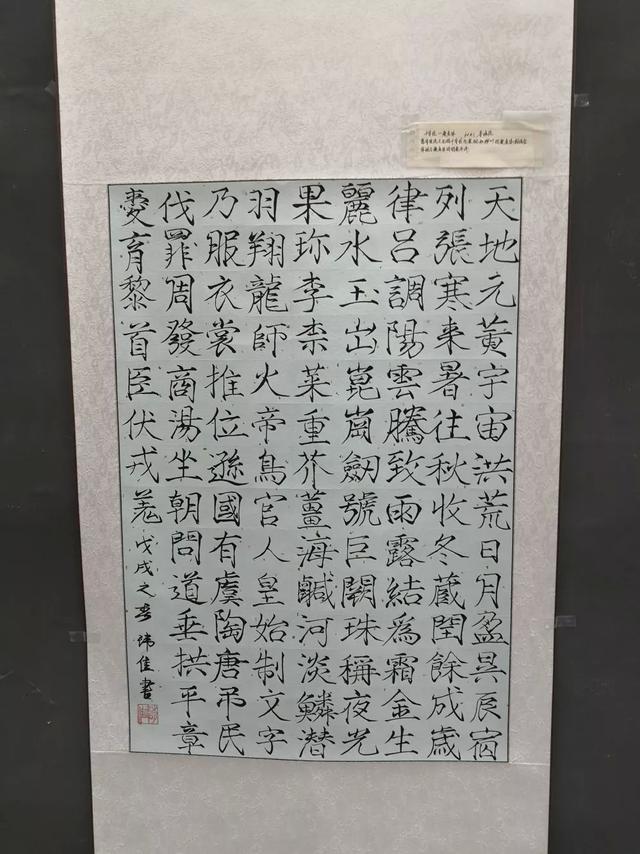 天地元黃宇宙洪荒日月盈昃辰宿
列張寒来暑往秋收冬蔵閏餘成歲
律吕調陽雲騰致雨露結為霜金生
麗水玉出崑崗劒號巨闕珠稱夜光
果珎李柰菜重芥薑海鹹河淡鱗潛
羽翔龍師火帝鳥官人皇始制文字
乃服衣裳推位遜國有虞陶唐吊民
伐罪周發商湯坐朝問道垂拱平章
愛育黎首臣伏戎羌 戊戌之春 佳書